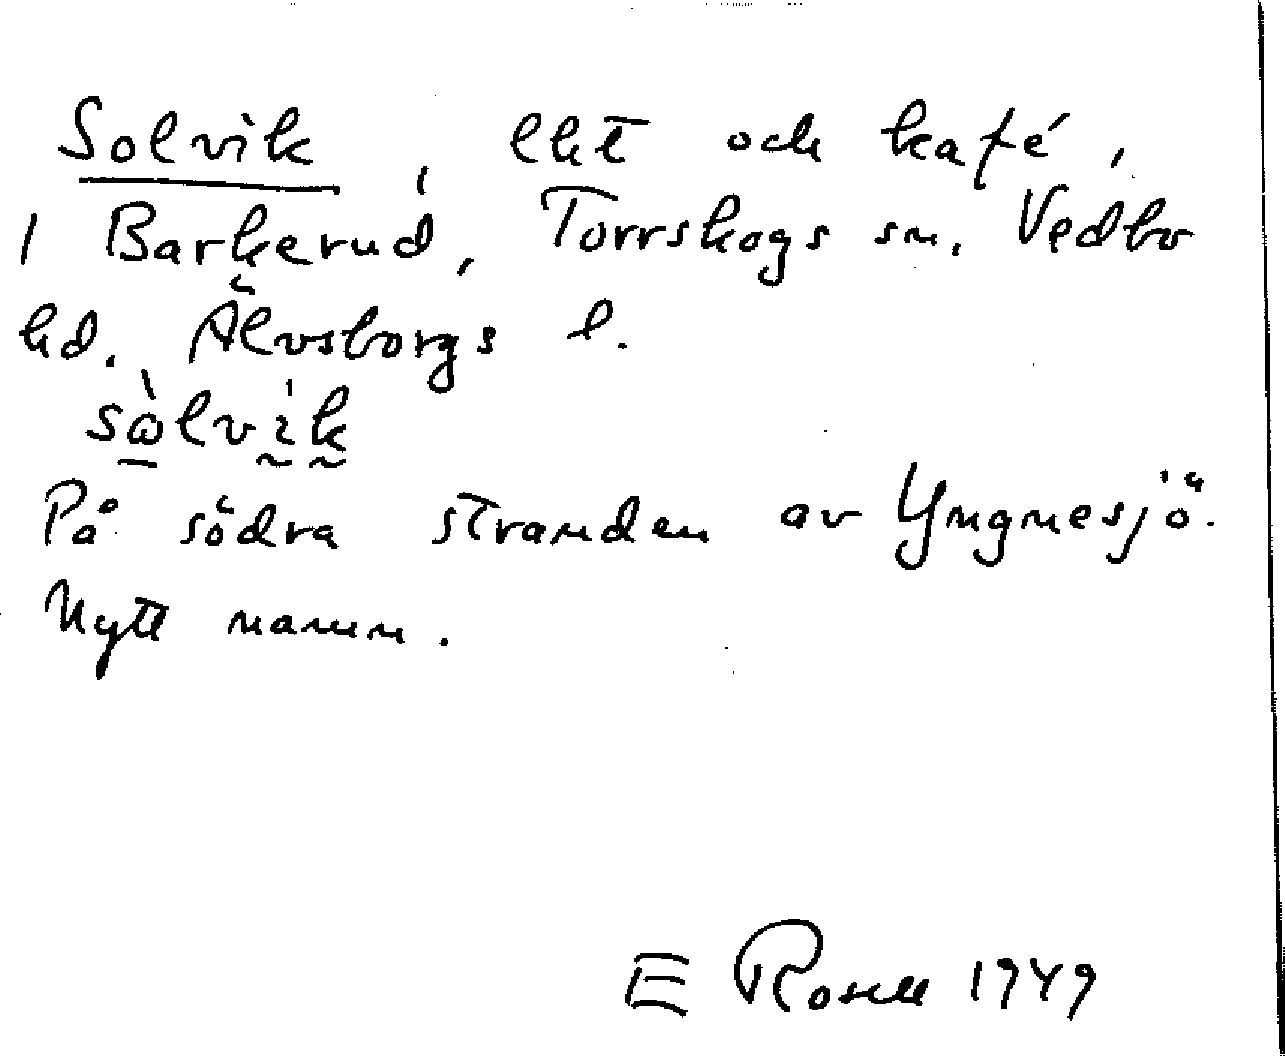 Solvik, lht och kafé,
1 Barkerud, Torrskogs sn. Vedbo
hd. Älvsborgs l.
sὼlvik
På södra stranden av Yngnesjö.
Nytt namn.
E Rosell 1949